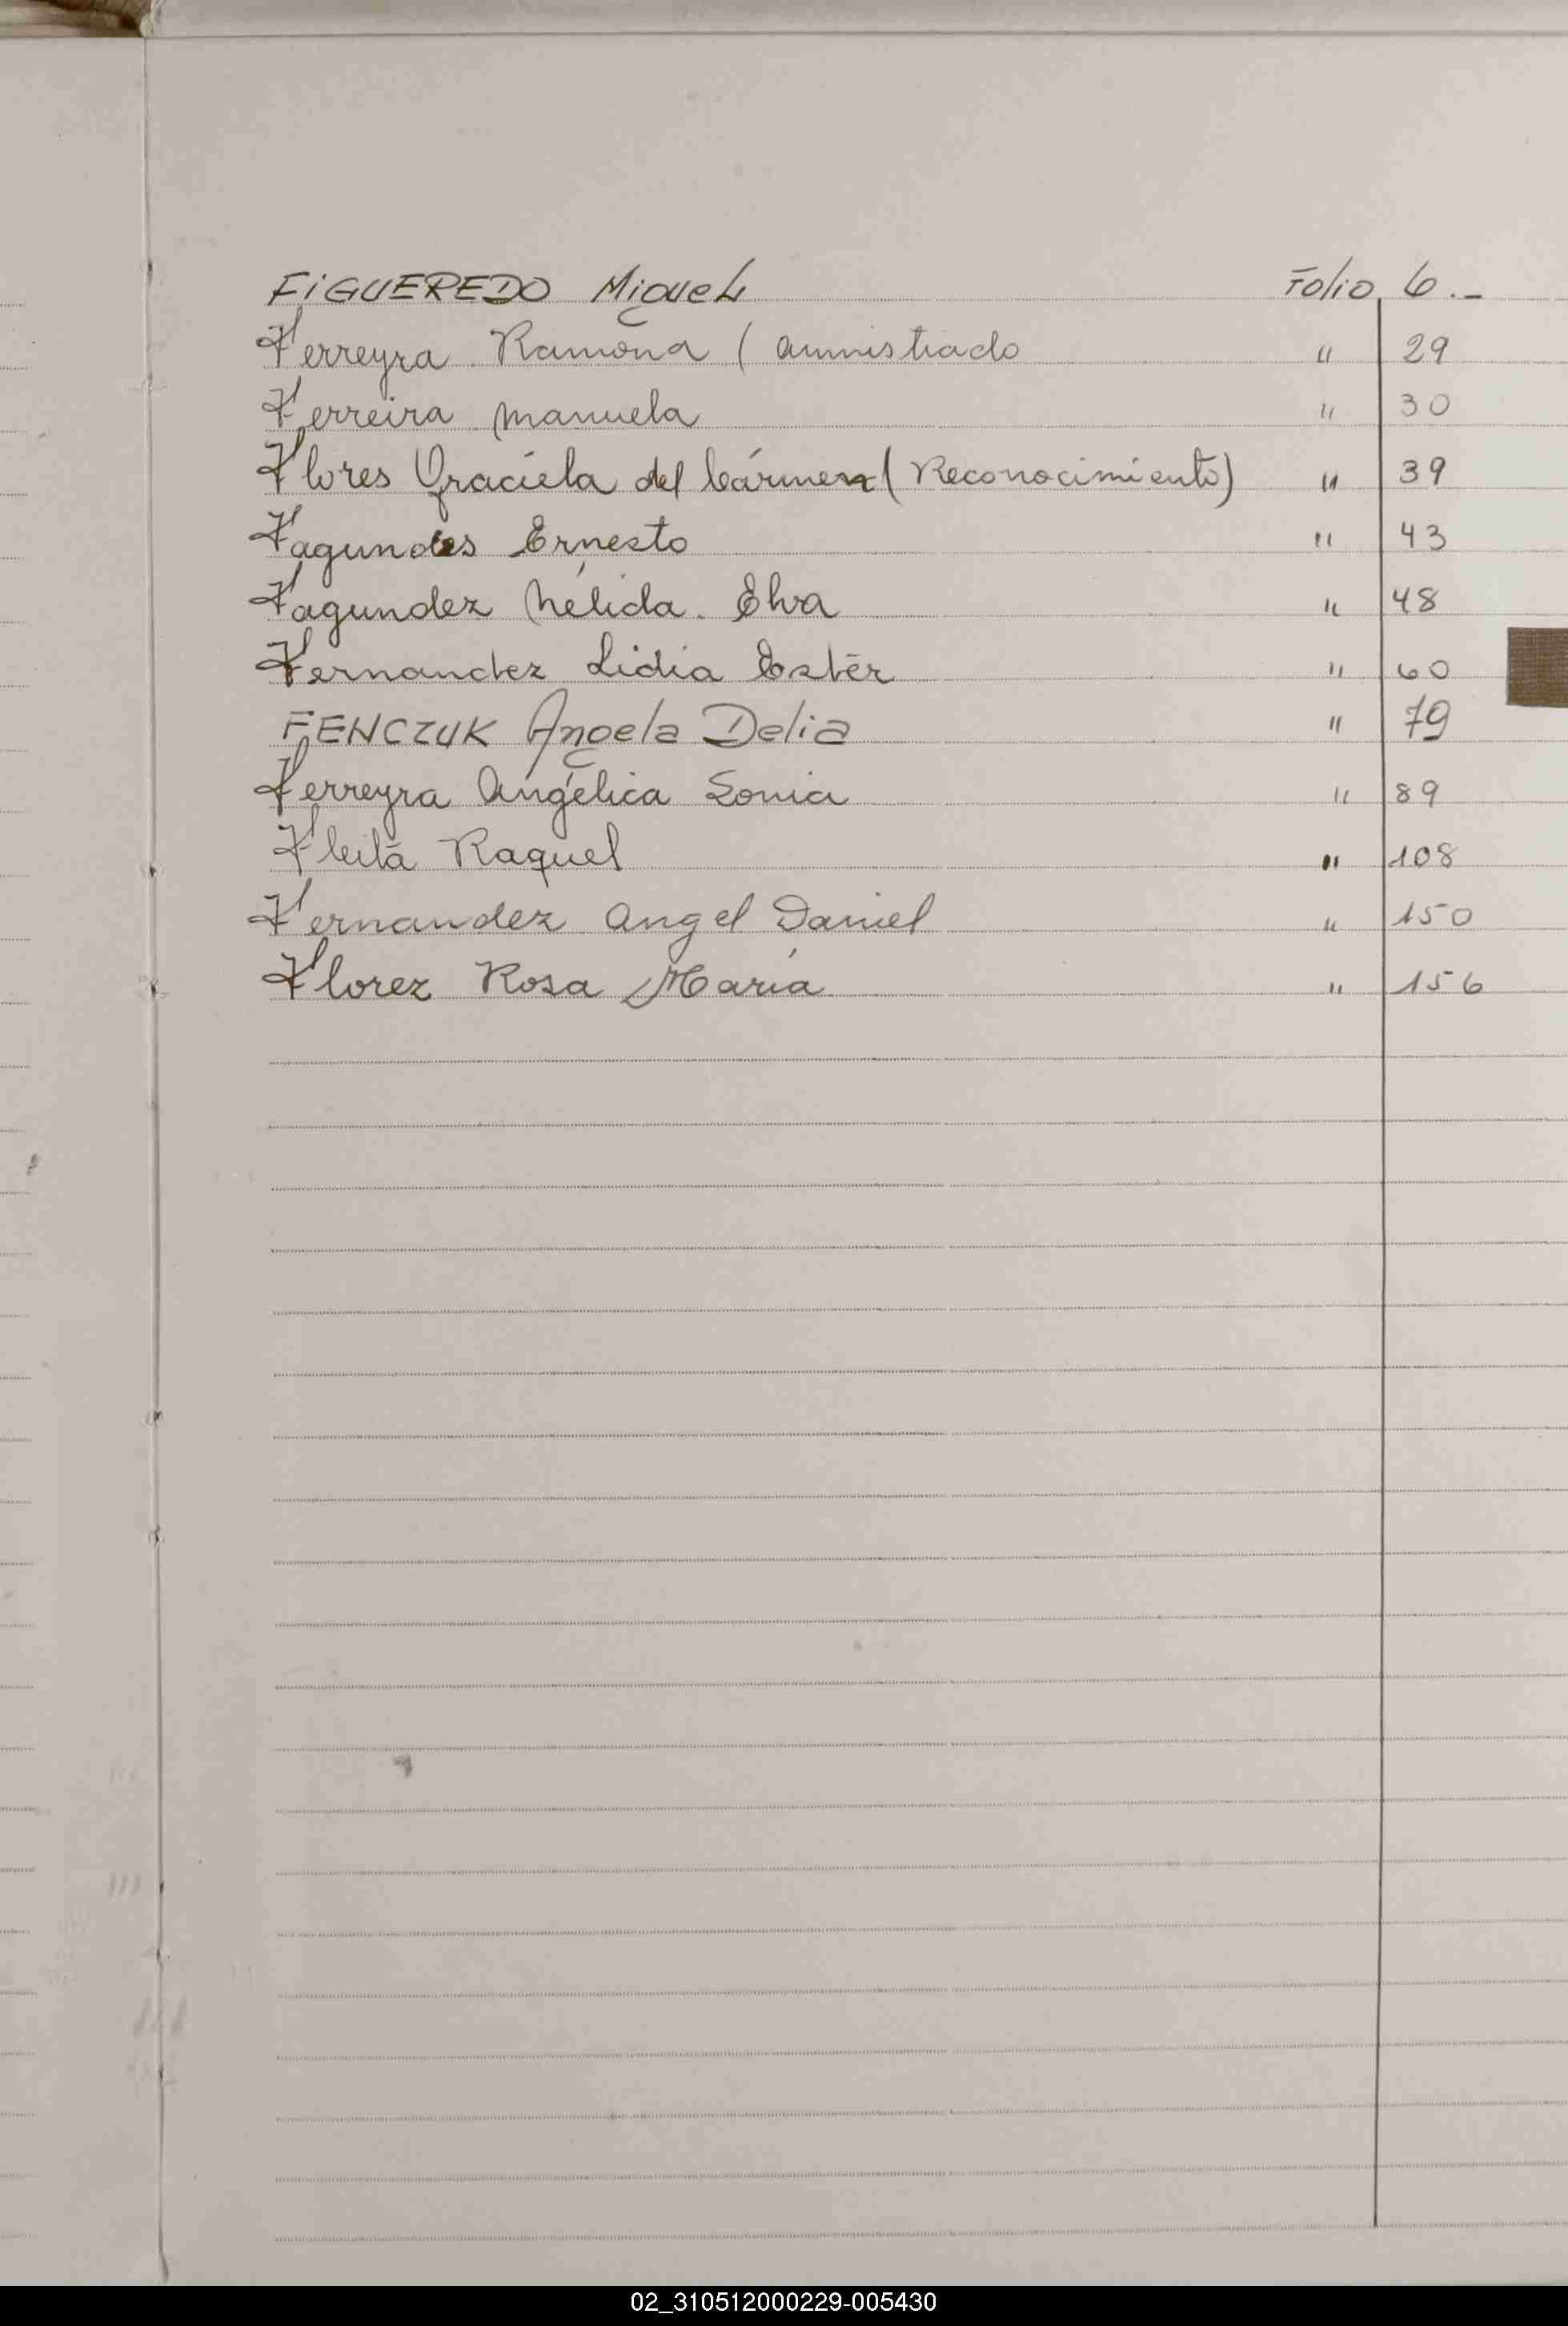 FiGUEREDO Miguel Folio 6.-
Ferreyra Ramona ( amnistiado " 29
Ferreira Manuela " 30
Flores Graciela del Cármen (Reconocimiento) " 39
Fagundes Ernesto " 43
Fagundez Nélida. Elva " 48
Fernandez Lidia Ester " 60
FENCZUK Angela Delia " 79
Ferreyra Angélica Sonia " 89
Fleita Raquel " 108
Fernandez Angel Daniel " 150
Florez Rosa María " 156
02_310512000229-005430